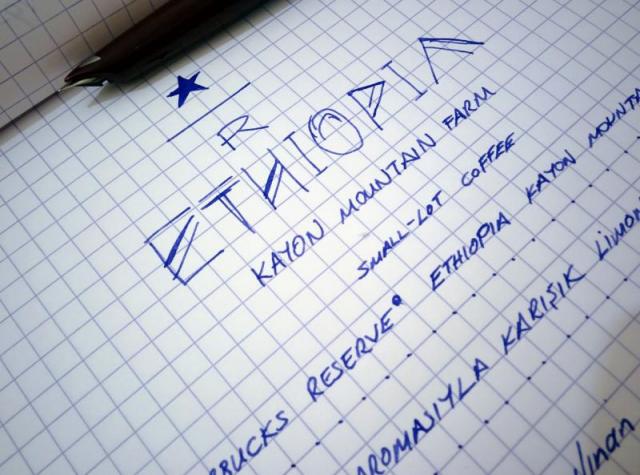 R
ETHIOPIA
KAYON MOUNTAIN FARM
SMALL-LOT COFFEE
RBUCKS RESERVE® ETHIOPIA KAYON MOUNTA
AROMASIYLA KARIŞIK LIMON